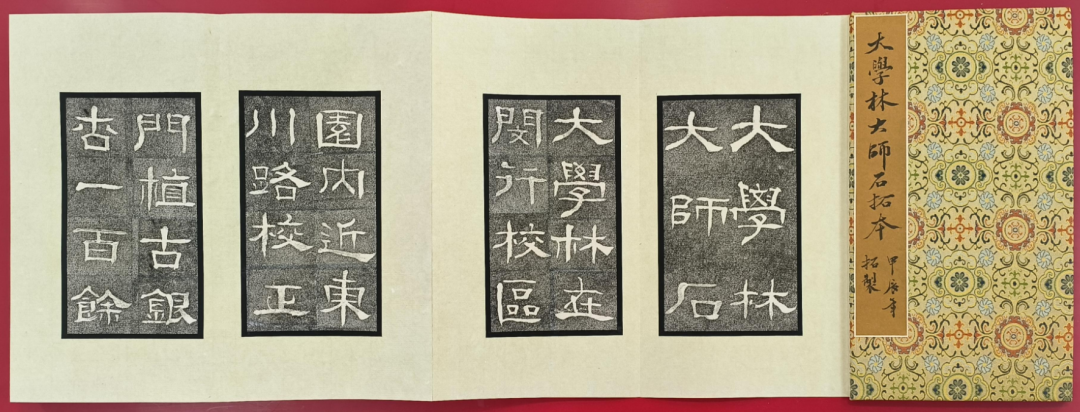 大學林大師石拓本
甲辰年
拓製
大學林
大師石
大學林在
閔行校區
園內近東
川路校正
門植古銀
杏一百餘